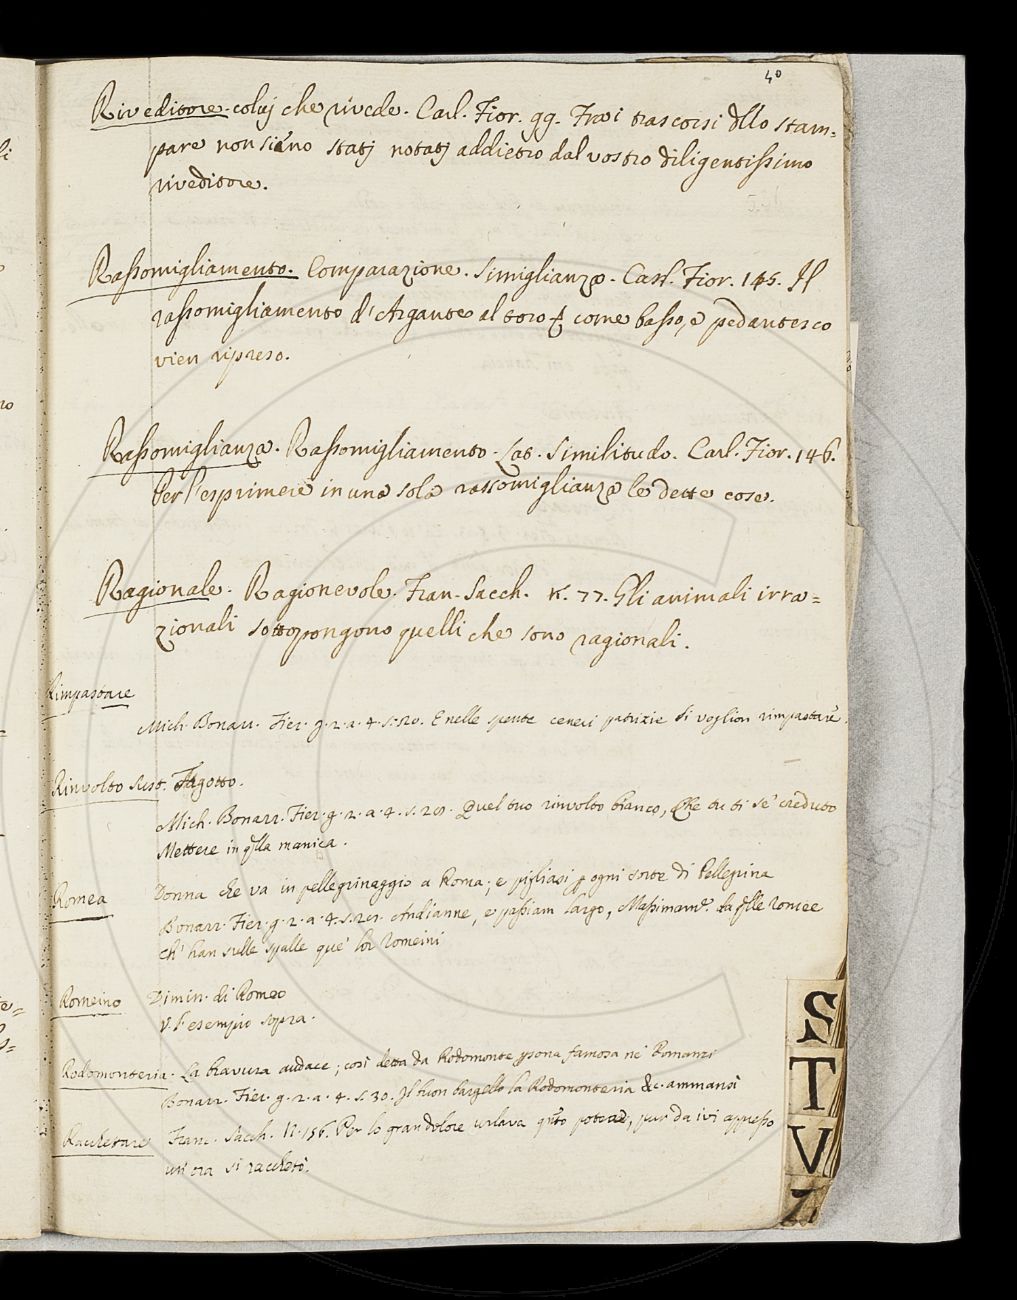 40
Riveditore. coluj che rivede. Carl. Fior. 99. Fra i trascorsi dllo stam=
pare non sieno statj notatj addietro dal vostro diligentissimo
riveditore.
Rassomigliamento. Comparazione. Simiglianza. Carl. Fior. 145. Il
rassomigliamento d'Argante al toro come basso, e pedantesco
vien ripreso.
Rassomiglianza. Rassomigliamento. Lat. Similitudo. Carl. Fior. 146.
Per l'esprimere in una sola rassomiglianza le dette cose.
Ragionale. Ragionevole. Fran. Sacch. 77. Gli animali irra=
zionali sottopongono quelli che sono ragionali.
Rimpastare
Mich. Bonarr. Fier. g. 2. a. 4. s. 20. E nelle spente ceneri patrizie si voglion rimpastare.
Rinvolto sust. Fagotto.
Mich. Bonarr. Fier. g. 2. a. 4. s. 20. Quel tuo rinvolto bianco, Che tu ti se' creduto
Mettere in qlla manica.
Romea
Donna che va in pellegrinaggio a Roma; e pigliasi p ogni sorte di Pellegrina
Bonarr. Fier. g. 2. a. 4. s. Andianne, e passiam largo, Massimame. da qlle romee
Ch' han sulle spalle que' lor romeini
Romeino Dimin. di Romeo
V. l'esempio sopra.
Rodomonteria. La bravura audace; così detta da Rodomonte psona famosa ne' Romanzi
Bonarr. Fier. g. 2. a. 4. s. 30. Il buon bargello la Rodomonteria &c. ammansì
Racchetare Franc. Sacch. N. 156. Per lo gran dolore urlava qto potea, pur da ivi appresso
un' ora si racchetò.
S
T
V
Z